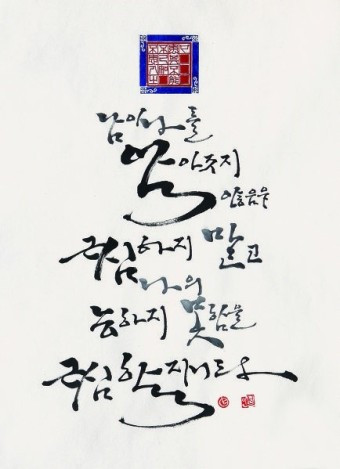 남이 나를
알아주지
않음을
근심하지 말고
나의
능하지 못함을
근심할지니라